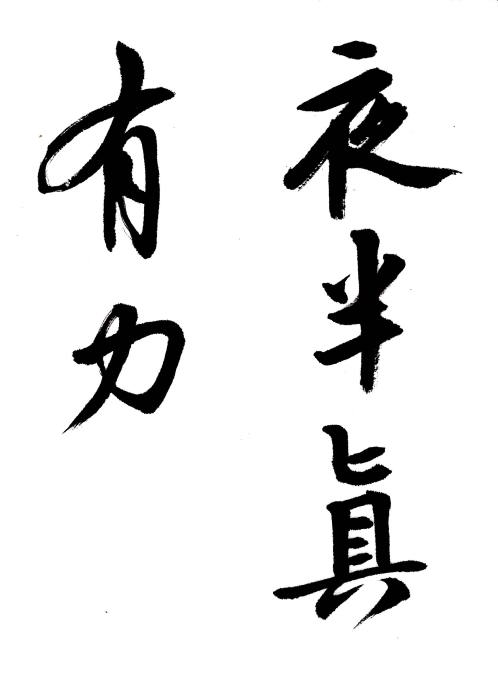 夜半眞
有力